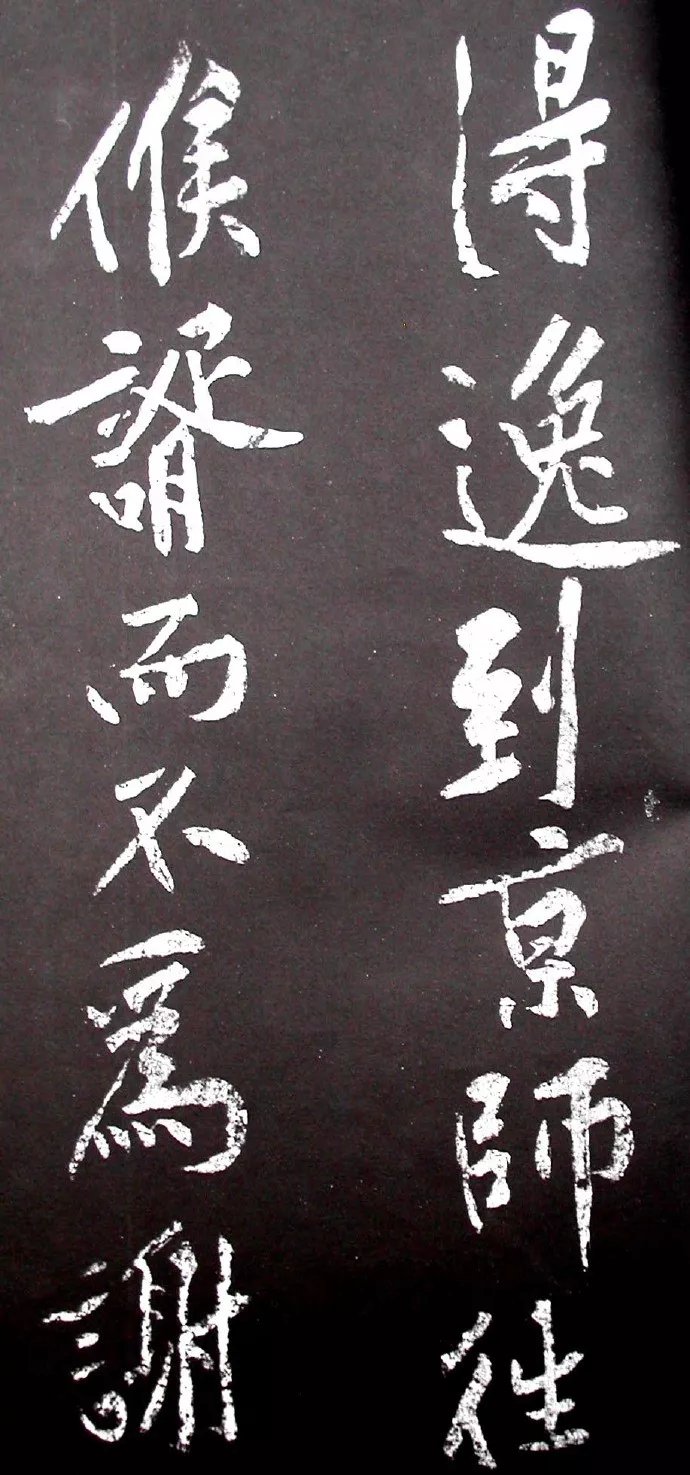 得逸到京師往
候諝而不為謝